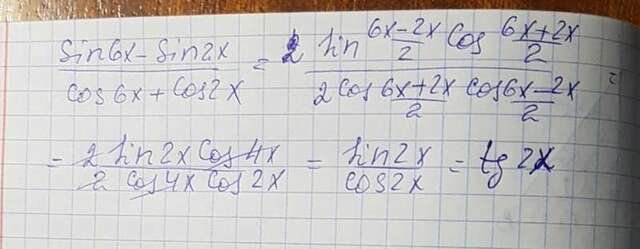 (sin6x - sin2x)/(cos6x + cos2x) = (2 sin (6x-2x)/2 cos (6x+2x)/2)/(2 cos (6x+2x)/2 cos (6x-2x)/2) =
= (2 sin2x cos4x)/(2 cos4x cos2x) = sin2x/cos2x = tg 2x